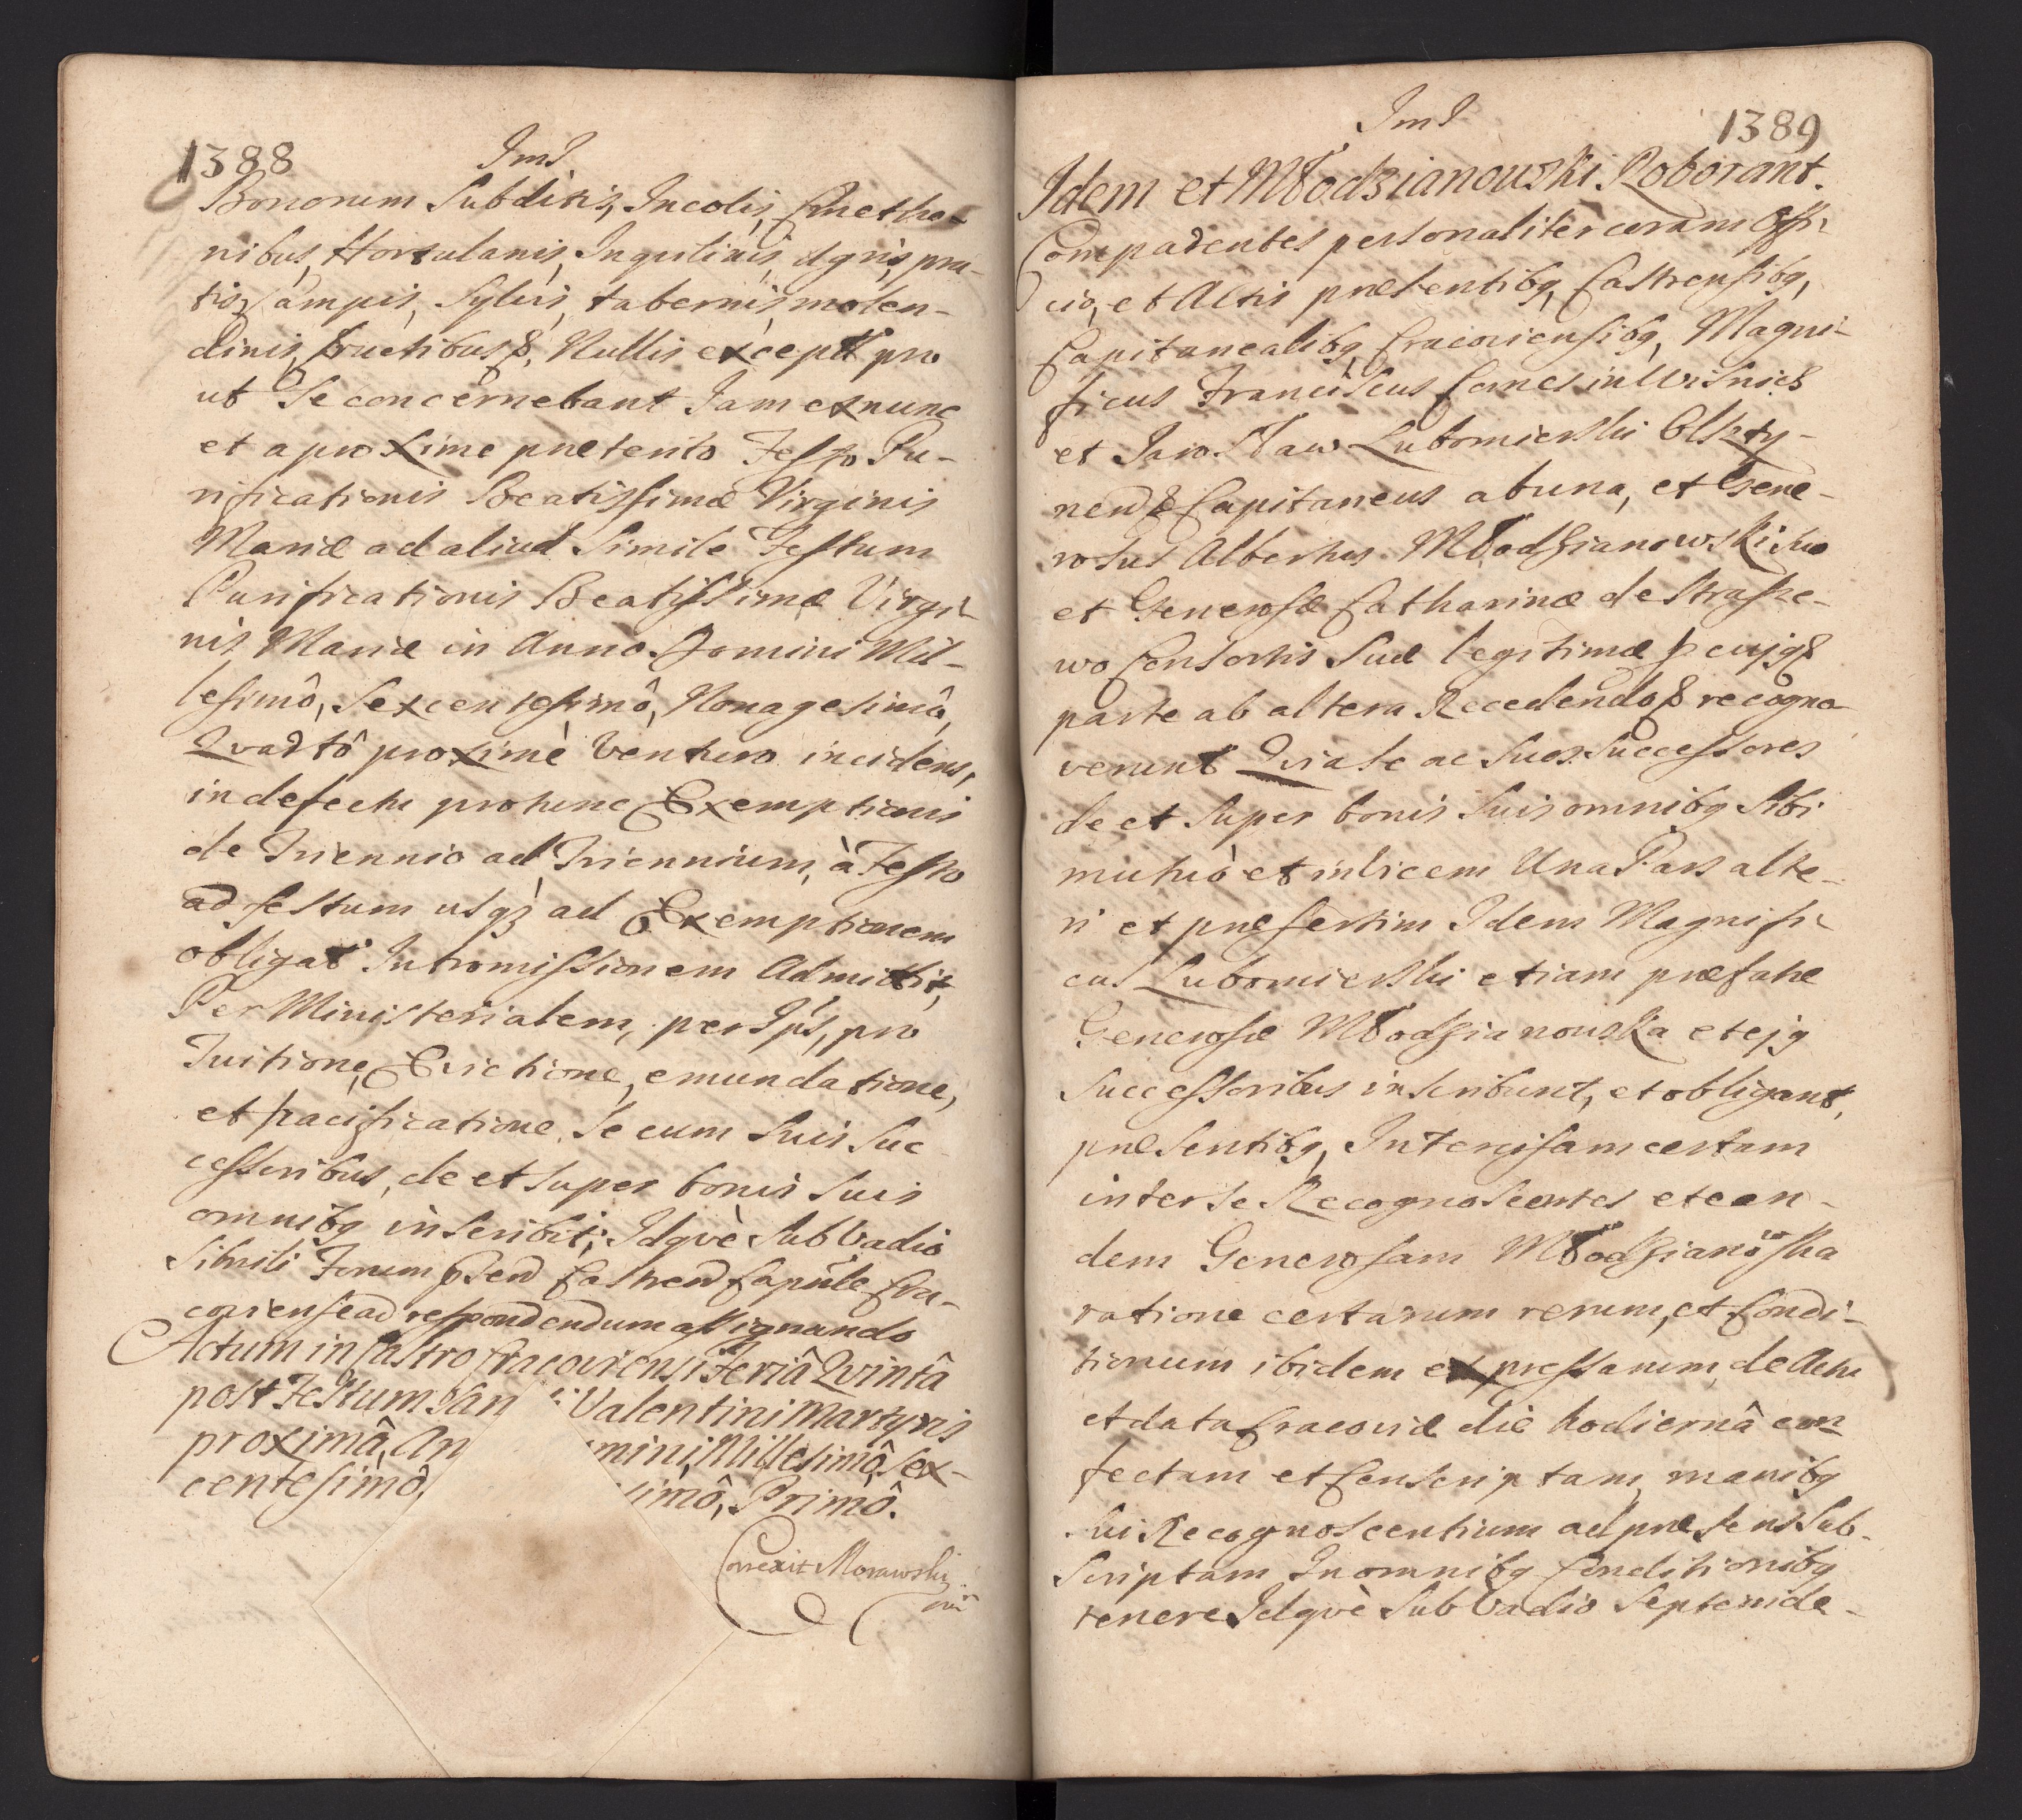 1388
Jml
Bonorum Subditis, Incolis, Cmetho-
nibus, Hortulanis, Inquilinis, Agris, pra-
tis, Campis, Sylvis, tabernis, molen-
dinis, fructibus &, Nullis exceptt pro
ut Se concernebant Jam ex nunc
et a proxime præterito Festo Pu-
rificationis Beatissimæ Virginis
Mariæ ad aliud Simile Festum
Purificationis Beatissimæ Virgi-
nis Mariæ in Anno Domini Mil-
lesimô, Sexcentesimô, Nonagesimô,
Qvartô proximè venturo incidens,
in defectu pro tunc Exemptionis
de Triennio ad Triennium, à Festo
ad festum usqz ad Exemptionem
obligat Intromissionem Admittit,
Per Ministerialem, per Jps, pro
Tuitione, Evictione, emundatione,
et pacificatione, Se cum Suis Suc
cessoribus, de et Super bonis Suis
omnibq inscribit; Idqvè Sub Vadio
Simili Forum pnd Castrend Capnle Cra-
coviense ad respondendum assignando
Actum in Castro Cracoviensi Feriâ Qvintâ
post Festum San Valentini Martyris
proximâ, An mini Millesimô Sex-
centesimô, simô, Primô.
Correxit Morawski
mp
Jml
1389
Idem et Młodzianowski Roborant.
Comparentes personaliter coram Offi-
cio, et Actis præsentibq, Castrensibq,
Capitanealibq Cracoviensibq, Magni-
ficus Franciscus Comes in Wisnicz
et Jarosław Lubomierski Olszty-
nend & Capitaneus ab una, et Gene-
rosus Albertus Młodzianowski suo
et Generosæ Catharinæ de Strasze-
wo Consortis Suæ legitimæ p cujq &
parte ab altera Recedendo & recogno-
verunt Qvia Se ac Suos Successores
de et Super bonis Suis omnibq Sibi
mutuò et invicem Una Pars alte-
ri et præsertim Idem Magnifi-
cus Lubomierski etiam præfatæ
Generosæ Młodzianowska et ejq
Successoribus inscribunt, et obligant,
præsentibq, Intercisam certam
inter Se Recognoscentes et ean-
dem Generosam Młodzianowska
ratione certarum rerum, et Condi-
tionum ibidem expressarum, de Actu
et data Cracoviæ die hodiernâ con-
fectam et Conscriptam, manibq
Sui Recognoscentium ad præsens Sub-
Scriptam In omnibq Conditionibq
tenere Idqvè Sub Vadio Septemde-